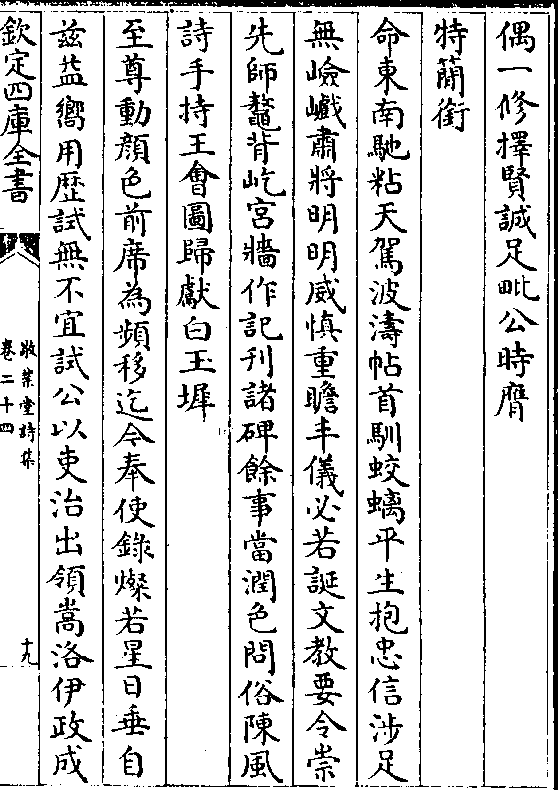 偶一修擇賢誠足毗公時膺
特簡銜
命東南馳粘天駕波濤帖首馴蛟螭平生抱忠信涉足
無嶮巇肅將明明威慎重瞻丰儀必若誕文教要令崇
先師鼇背屹宮牆作記刋諸碑餘事當潤色問俗陳風
詩手持王會圖歸獻白玉墀
至尊動顔色前席為頻移迄今奉使錄燦若星日垂自
兹益嚮用歴試無不宜試公以吏治出領嵩洛伊政成
欽定四庫全書
敬業堂詩集
卷二十四
十九